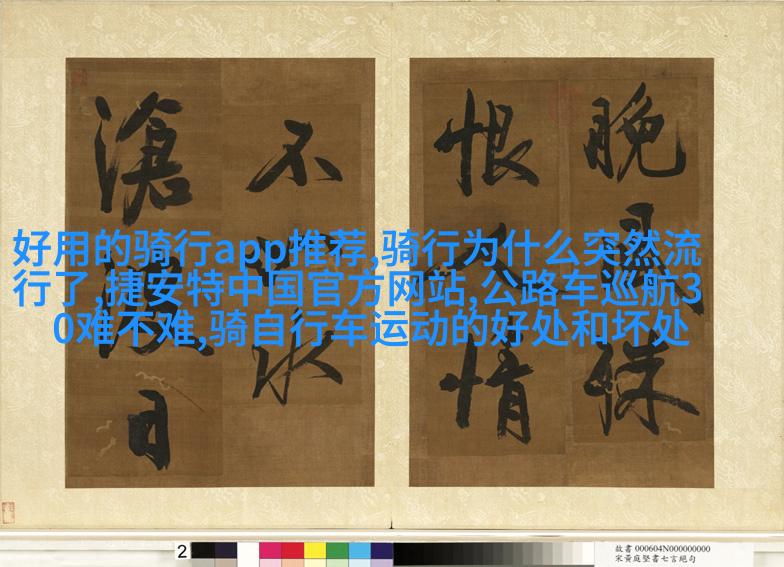 晚
恨 情
不 水
滄 日
好用的骑行app推荐,骑行为什么突然流
行了,捷安特中国官方网站,公路车巡航3
0难不难,骑自行车运动的好处和坏处
2
故書 000604N000000000
宋黃庭堅書七言絕句